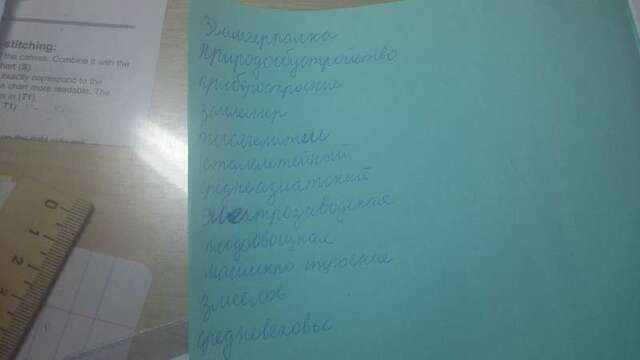 -stitching:
the canvas. Combine it with the
hart (S).
exactly correspond to the
e chart more readable. The
s in (T1).
T1):
Землечерпалка
Природообустройство
приборостроение
землемер
сталелитейный
среднеазиатский
Электрозаводская
плодоовощная
машино строение
змеелов
средневековье
0
1
2